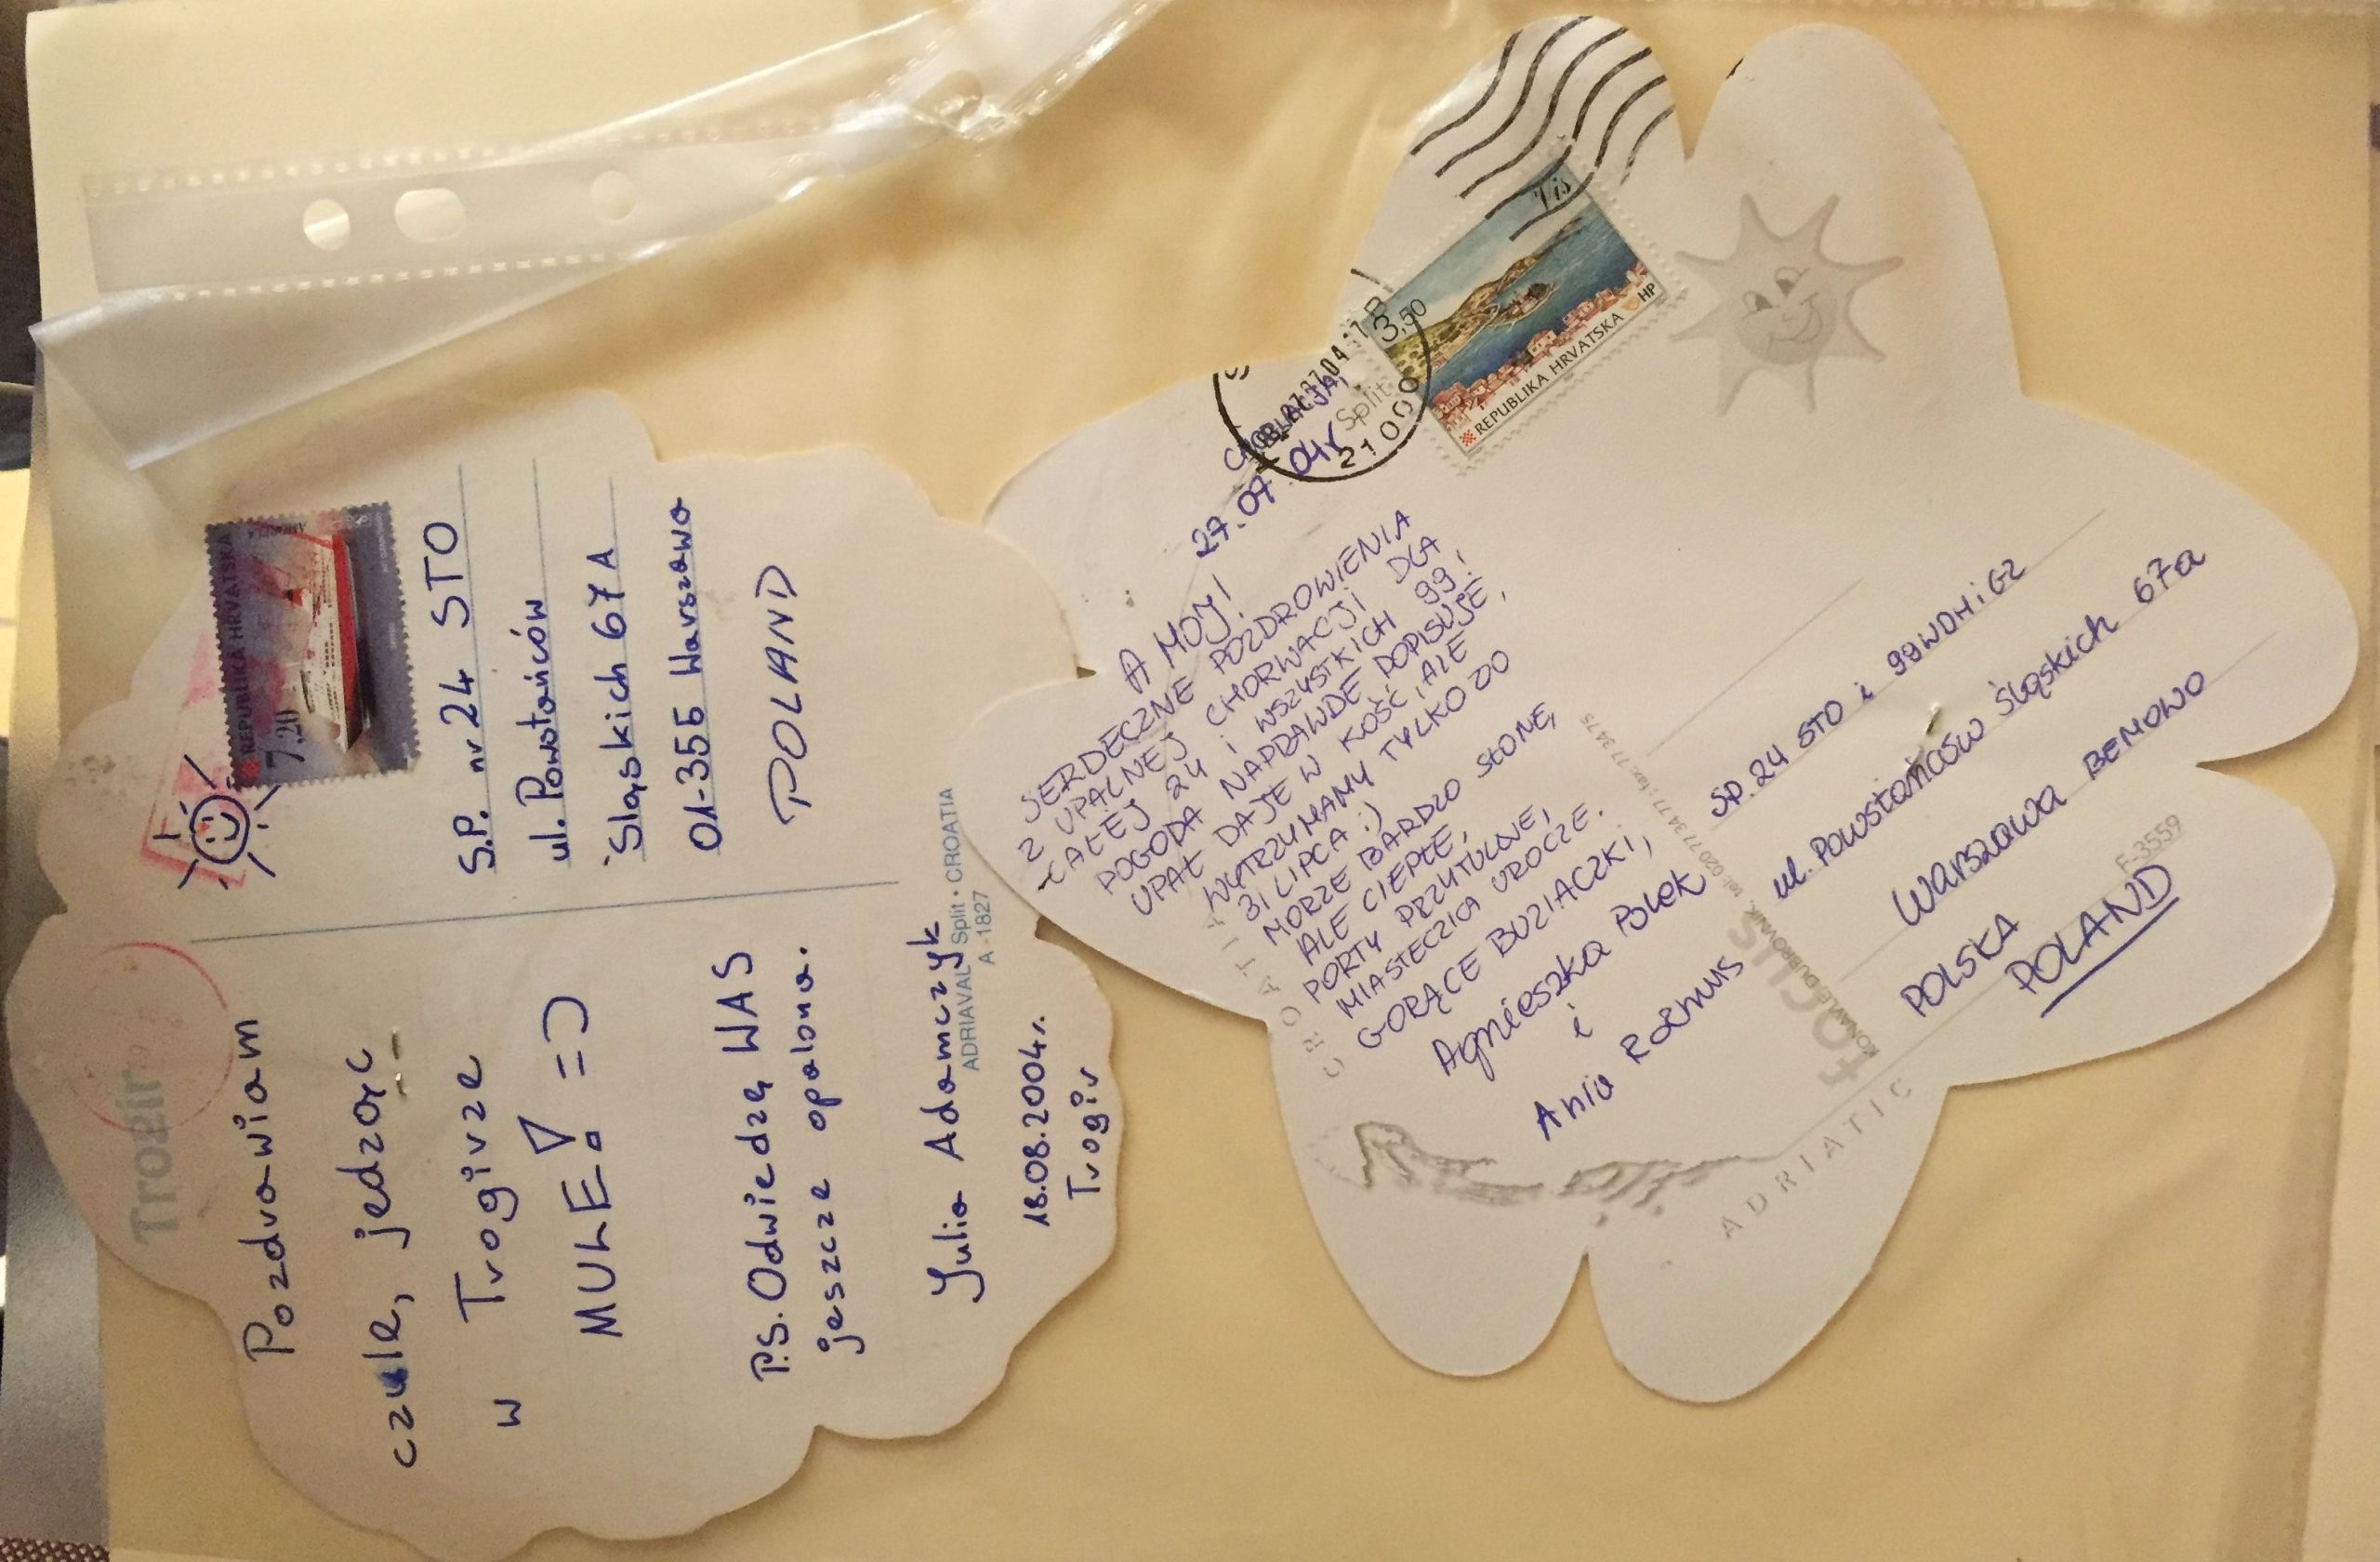 Trogir
Pozdrawiam
czule, jedząc
w Trogirze
MULE! =)
P.S. Odwiedzę WAS
jeszcze opalona.
Julia Adamczyk
18.08.2004r.
Trogir
REPUBLIKA HRVATSKA
7.20
S.P. nr 24 STO
ul. Powstańców
Śląskich 67A
01-355 Warszawa
POLAND
ADRIAVAL Split • CROATIA
A-1827
CHORWACJA,
27.07.04r
Split
21000
3,50
Vis
REPUBLIKA HRVATSKA
HP
AHOJ!
SERDECZNE POZDROWIENIA
Z UPALNEJ CHORWACJI DLA
CAŁEJ 24 I WSZYSTKICH 99!
POGODA NAPRAWDĘ DOPISUJE,
UPAŁ DAJE W KOŚĆ, ALE
WYTRZYMAMY TYLKO DO
31 LIPCA :)
MORZE BARDZO SŁONE,
ALE CIEPŁE,
PORTY PRZYTULNE,
MIASTECZKA UROCZE.
GORĄCE BUZIACZKI,
Agnieszka Polek
i
Ania
SP. 24 STO i 99WDHiGZ
ul. Powstańców Śląskich 67a
Warszawa BEMOWO
POLSKA
POLAND
CROATIA
ADRIATIC
focus
KONAVLE, DUBROVNIK, tel: 020 773 477; fax: 773 475
F-3559